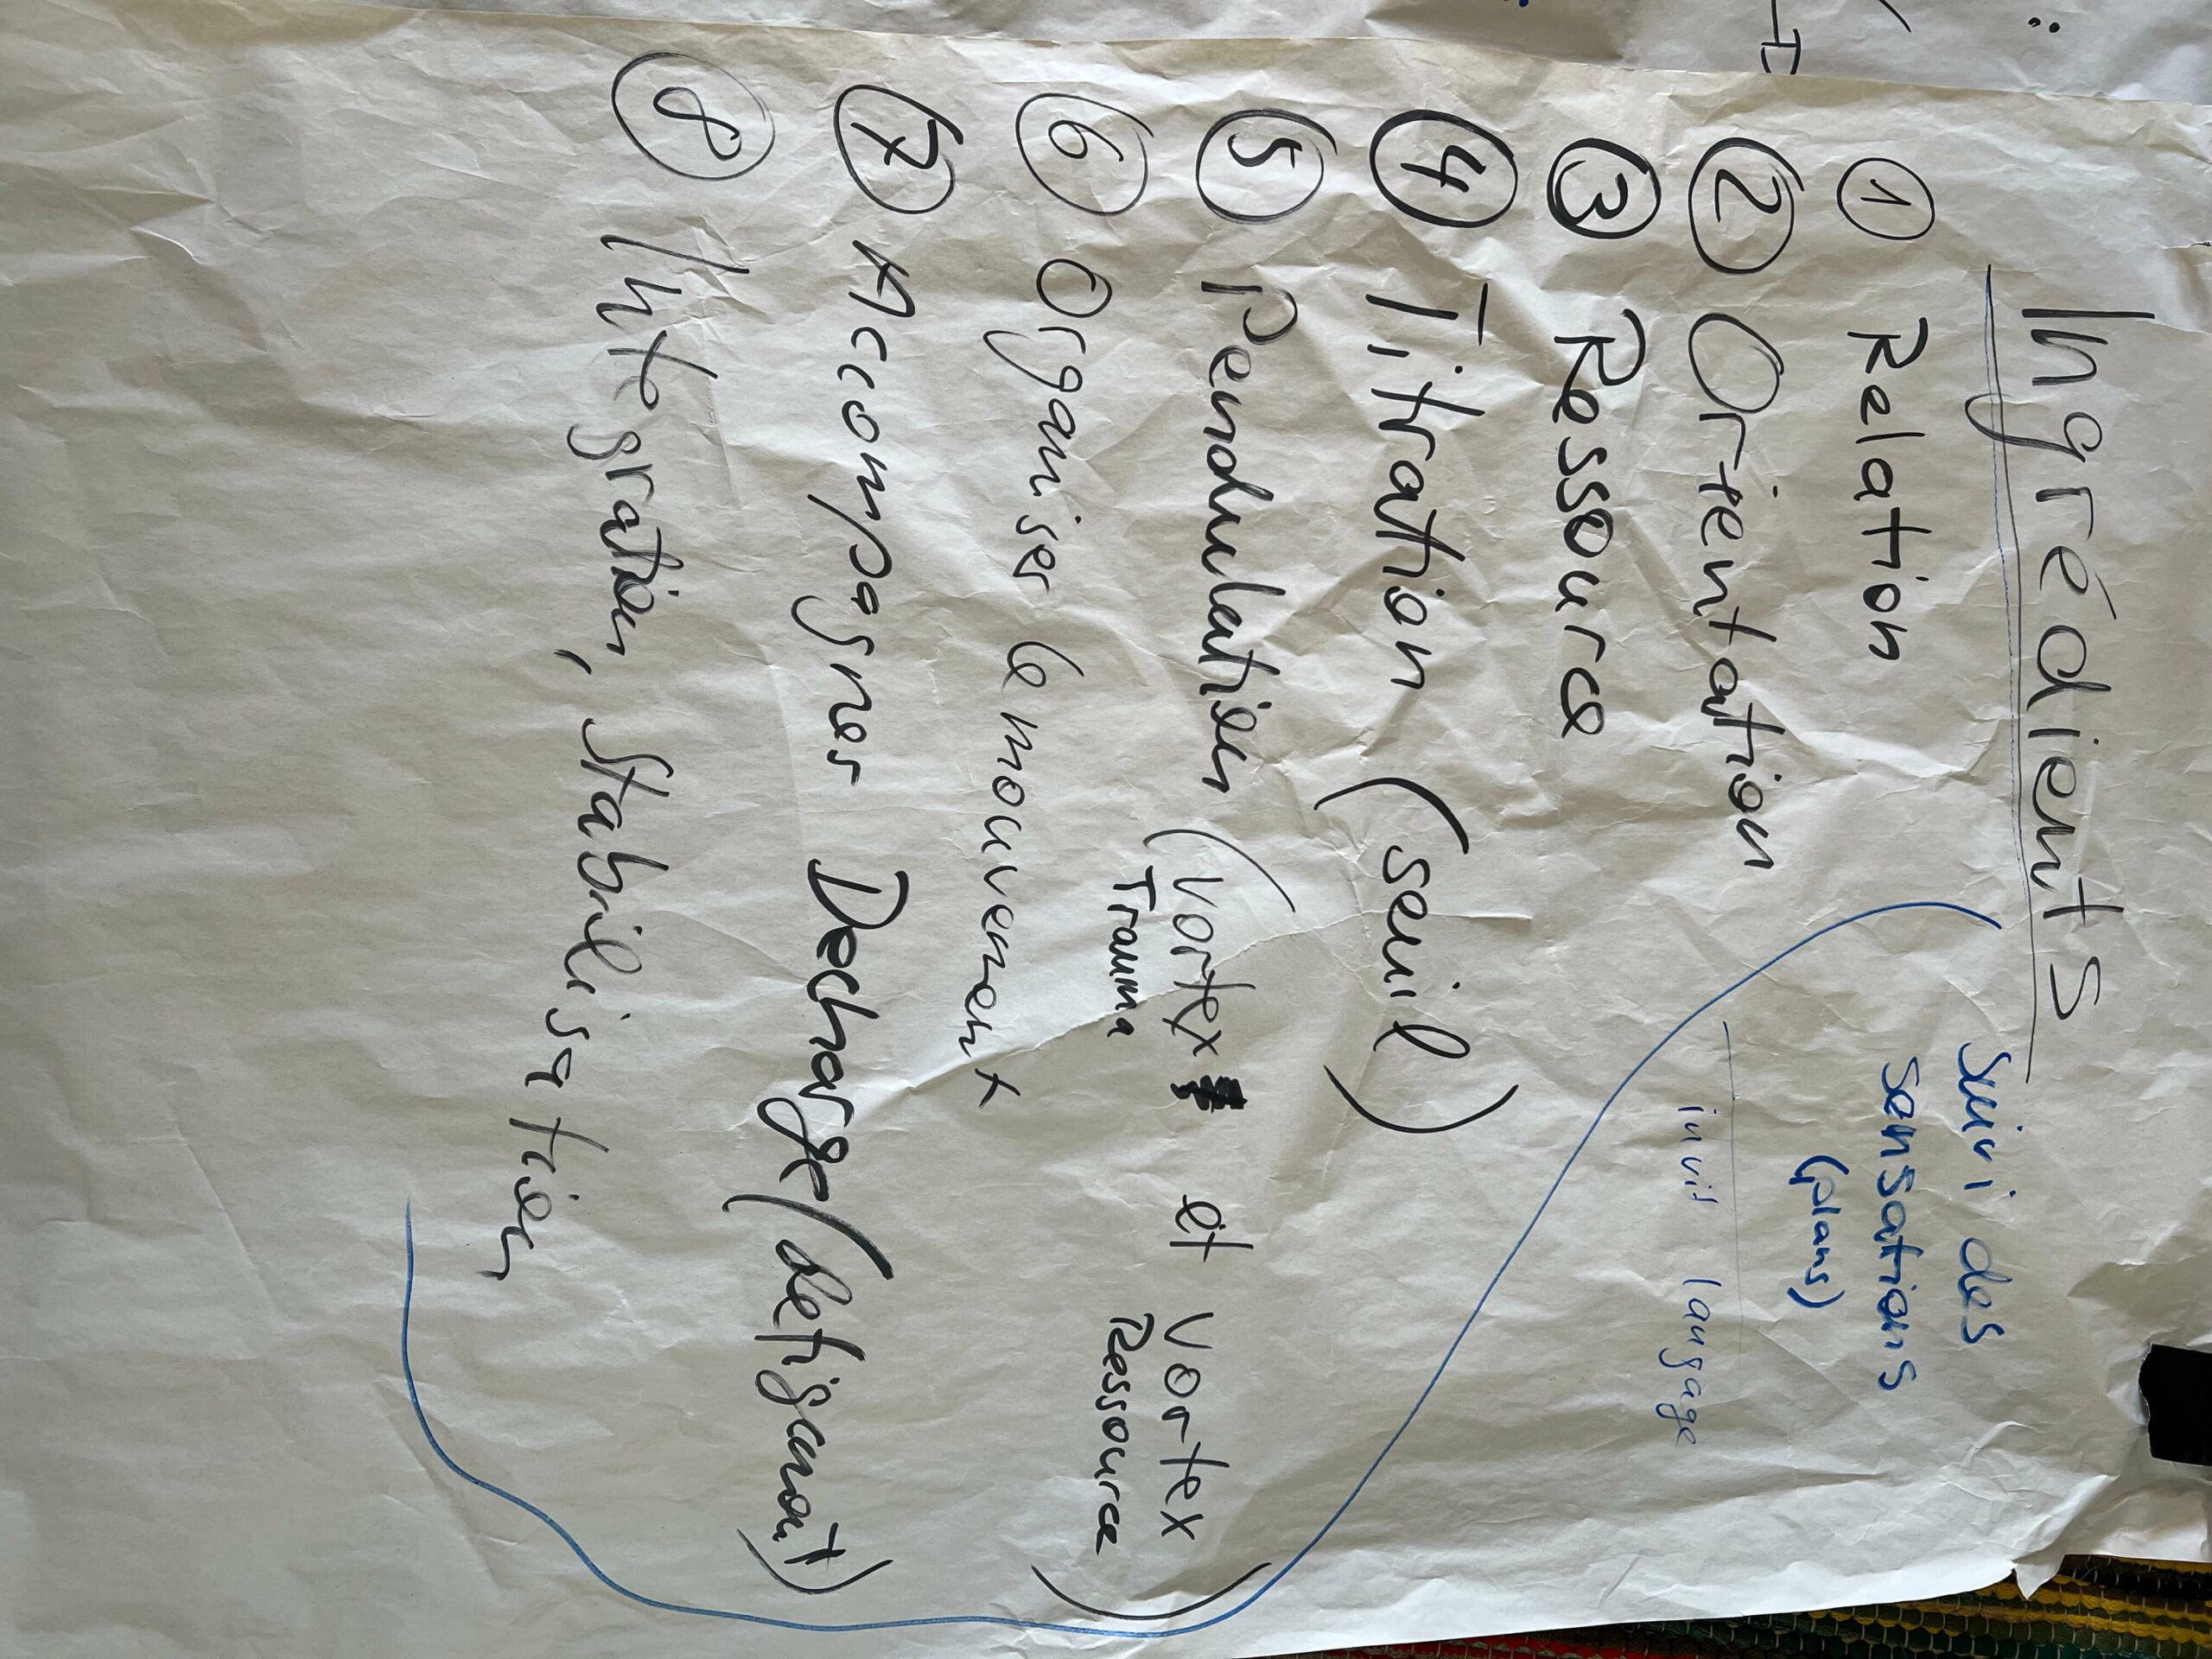 Ingrédients
① Relation
② Orientation
③ Ressource
④ Titration (seuil)
⑤ Pendulation (Vortex et Vortex
Trauma Ressource)
⑥ Organiser le mouvement
⑦ Accompagner Decharge (defigement)
⑧ Integration, Stabilisation
suivi des
sensations
(plans)
langage